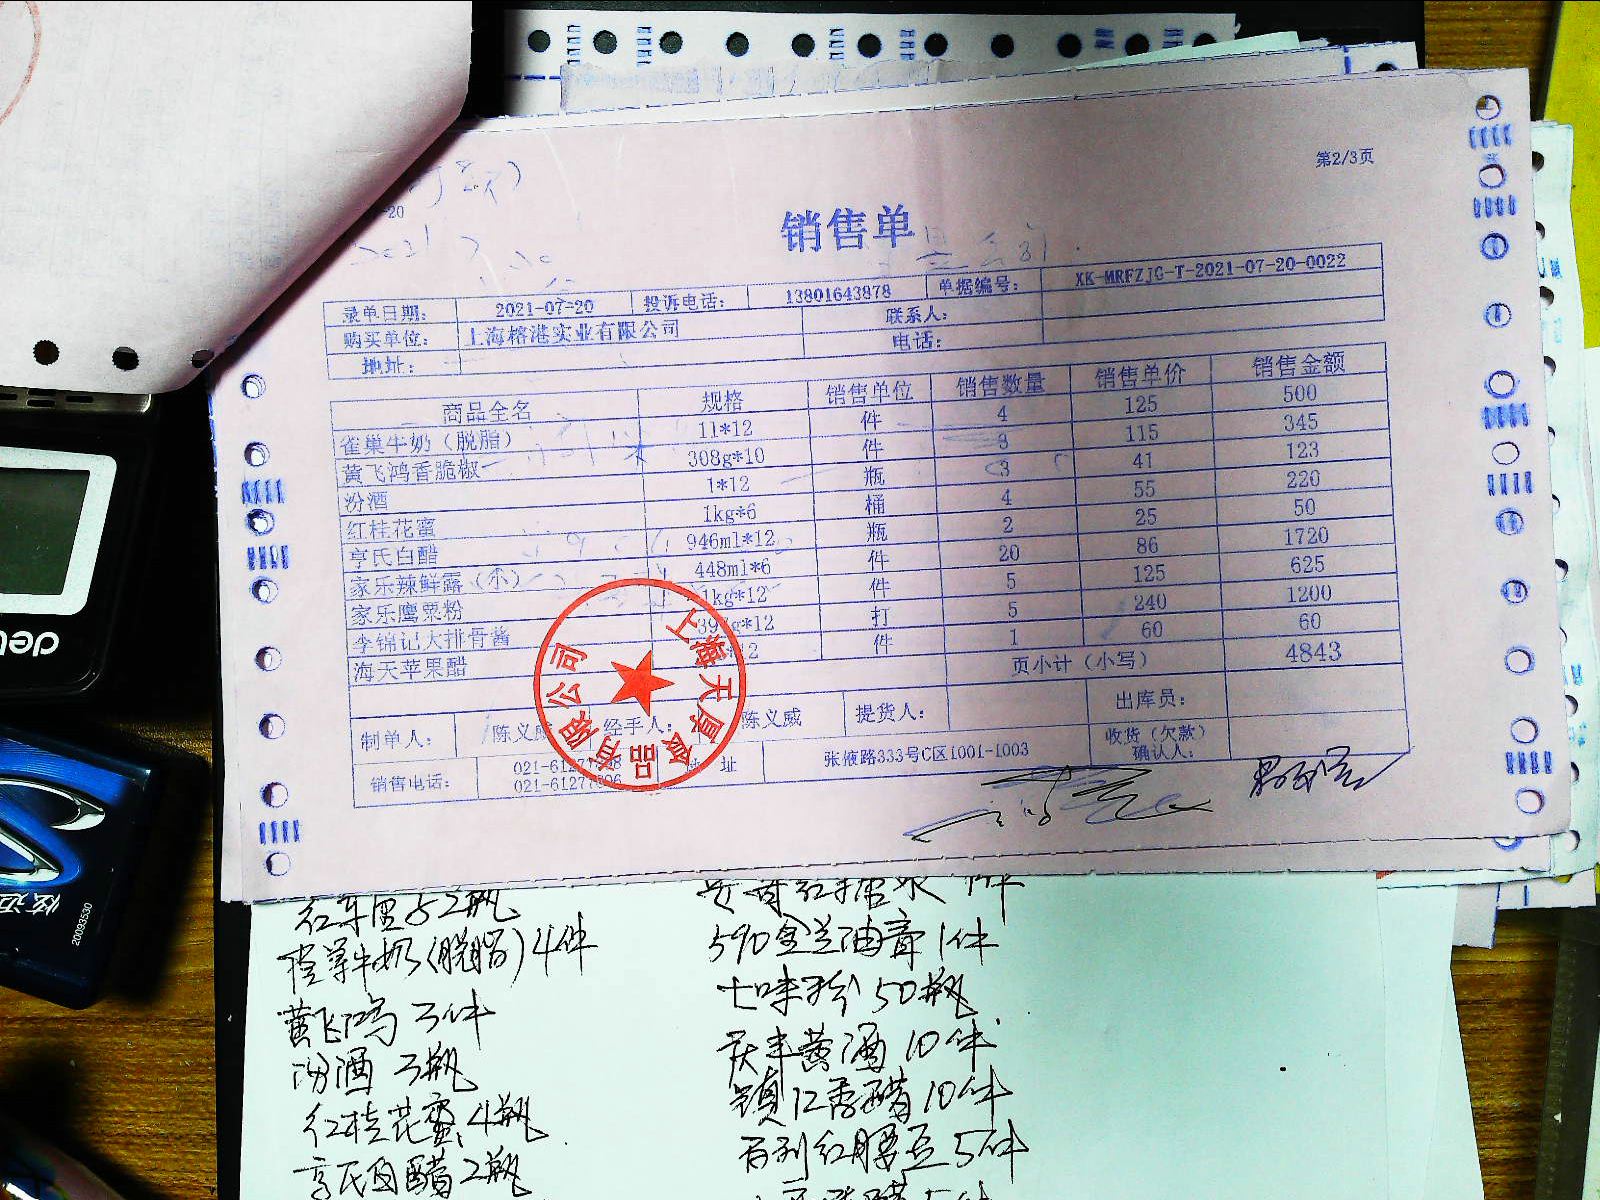 第2/3页
-20
销售单
录单日期： 2021-07-20 投诉电话： 13801643878 单据编号： XK-MRFZJG-T-2021-07-20-0022
购买单位： 上海榕港实业有限公司 联系人：
地址： 电话：
商品全名 规格 销售单位 销售数量 销售单价 销售金额
雀巢牛奶（脱脂） 1l*12 件 4 125 500
黄飞鸿香脆椒 308g*10 件 3 115 345
汾酒 1*12 瓶 3 41 123
红桂花蜜 1kg*6 桶 4 55 220
亨氏白醋 946ml*12 瓶 2 25 50
家乐辣鲜露（小） 448ml*6 件 20 86 1720
家乐鹰粟粉 1kg*12 件 5 125 625
李锦记大排骨酱 *12 打 5 240 1200
海天苹果醋 *12 件 1 60 60
页小计（小写） 4843
制单人： 陈义威 经手人： 陈义威 提货人： 出库员：
销售电话： 021-6127 地 址 张掖路333号C区1001-1003 收货（欠款）确认人：
021-6127
上海天厚食品有限公司
deli
炫迈
20093530
2瓶
牛奶(脱脂) 4件
黄飞鸿 3件
汾酒 3瓶
红桂花蜜 4瓶
亨氏白醋 2瓶
590金兰油膏 1件
七味粉 50瓶
黄酒 10件
镇江香醋 10件
红腰豆 5件